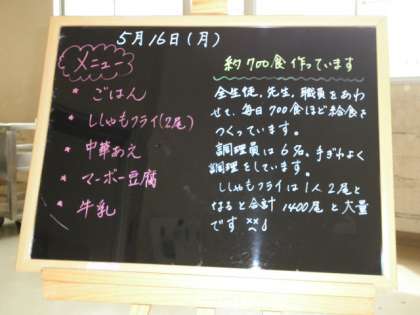 5月16日(月)
メニュー
* ごはん
* ししゃもフライ(2尾)
* 中華あえ
* マーボー豆腐
* 牛乳
約700食作っています
全生徒、先生、職員をあわ
せて、毎日700食ほど給食を
つくっています。
調理員は6名。手ぎわよく
調理をしています。
ししゃもフライは1人2尾と
なると合計1400尾と大量
です